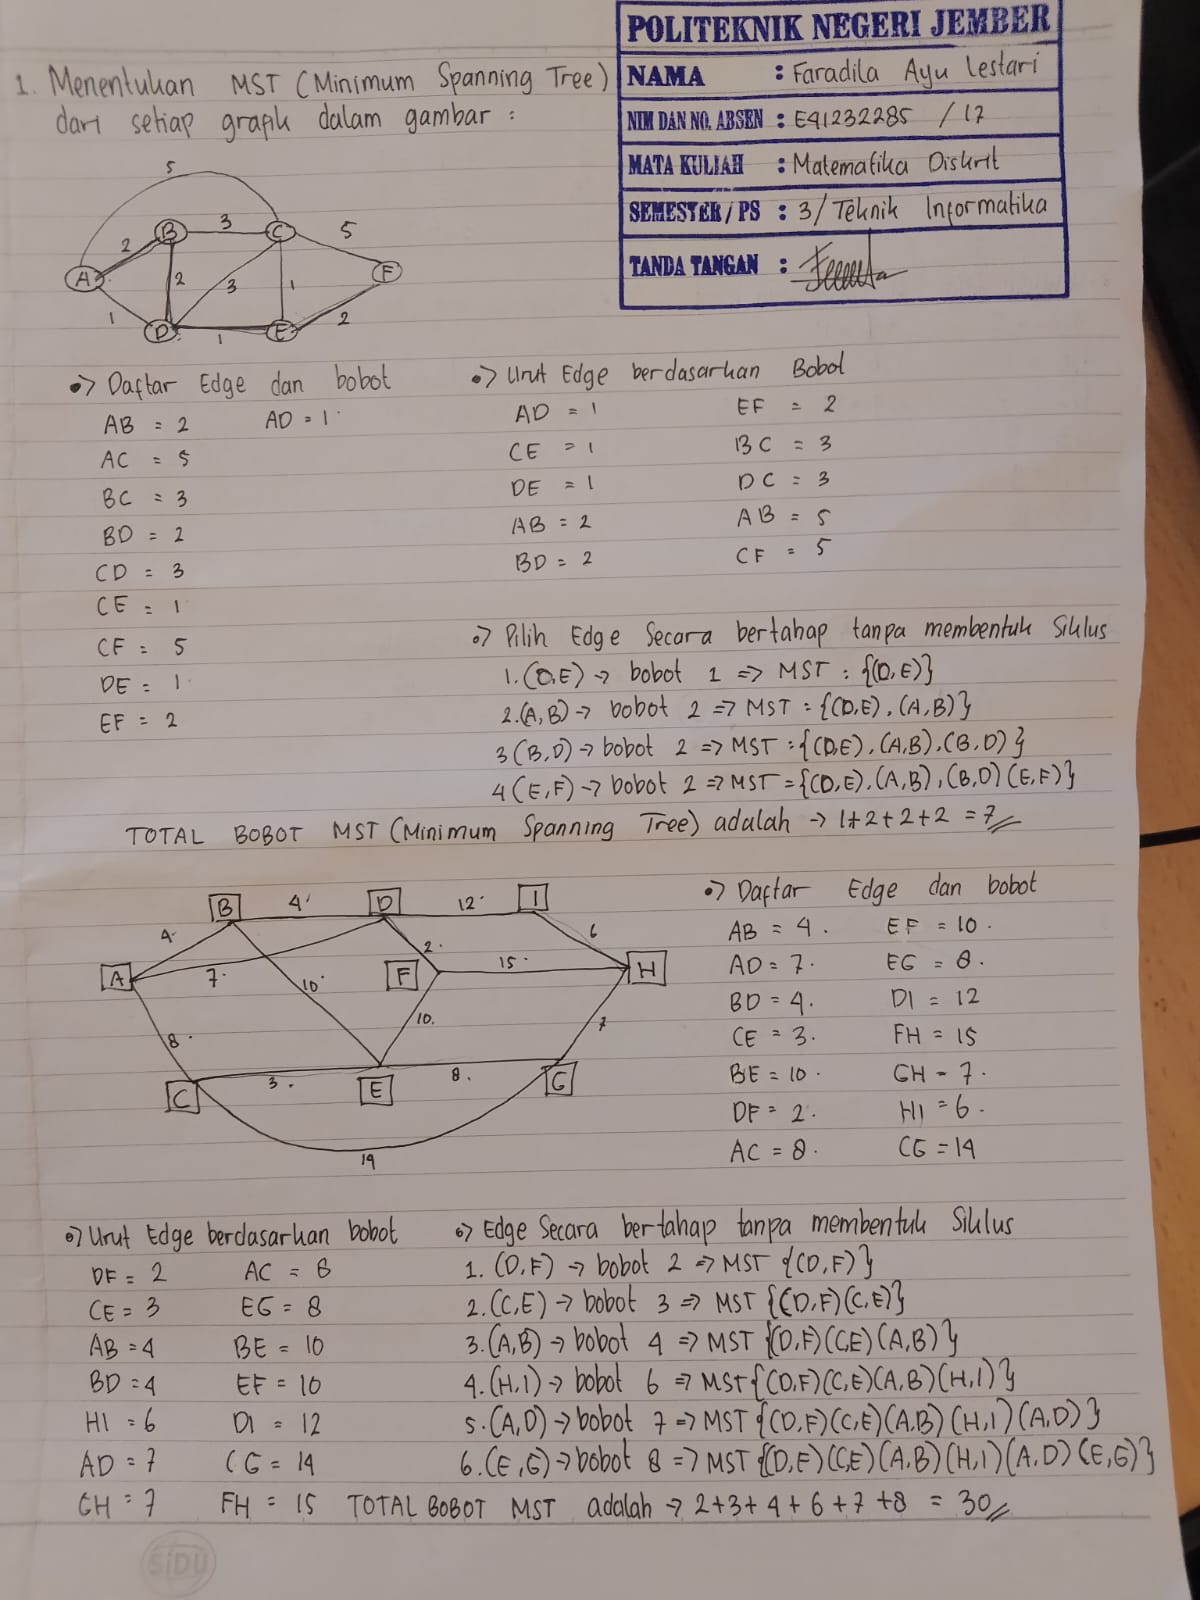 POLITEKNIK NEGERI JEMBER
NAMA : Faradila Ayu Lestari
NIM DAN NO. ABSEN : E41232285 / 17
MATA KULIAH : Matematika Diskrit
SEMESTER / PS : 3/ Teknik Informatika
TANDA TANGAN :
1. Menentukan MST (Minimum Spanning Tree)
dari setiap graph dalam gambar :
5
B 3 C 5
2
A 2 3 1 F
1 D 1 E 2
•> Daftar Edge dan bobot
AB = 2 AD = 1
AC = 5
BC = 3
BD = 2
CD = 3
CE = 1
CF = 5
DE = 1
EF = 2
•> Urut Edge berdasarkan Bobot
AD = 1 EF = 2
CE = 1 BC = 3
DE = 1 DC = 3
AB = 2 AB = 5
BD = 2 CF = 5
•> Pilih Edge Secara bertahap tanpa membentuk Siklus
1. (D,E) -> bobot 1 => MST : {(D,E)}
2. (A,B) -> bobot 2 => MST : {(D,E), (A,B)}
3 (B,D) -> bobot 2 => MST : {(D,E), (A,B), (B,D)}
4 (E,F) -> bobot 2 => MST = {(D,E), (A,B), (B,D) (E,F)}
TOTAL BOBOT MST (Minimum Spanning Tree) adalah -> 1+2+2+2 = 7
B 4 D 12 I
4 2 6
A 7 10 F 15 H
8 10 7
C 3 E 8 G
14
•> Daftar Edge dan bobot
AB = 4 EF = 10
AD = 7 EG = 8
BD = 4 DI = 12
CE = 3 FH = 15
BE = 10 GH = 7
DF = 2 HI = 6
AC = 8 CG = 14
•> Urut Edge berdasarkan bobot
DF = 2 AC = 8
CE = 3 EG = 8
AB = 4 BE = 10
BD = 4 EF = 10
HI = 6 DI = 12
AD = 7 CG = 14
GH = 7 FH = 15
•> Edge Secara bertahap tanpa membentuk Siklus
1. (D,F) -> bobot 2 => MST {(D,F)}
2. (C,E) -> bobot 3 => MST {(D,F)(C,E)}
3. (A,B) -> bobot 4 => MST {(D,F)(C,E)(A,B)}
4. (H,I) -> bobot 6 => MST {(D,F)(C,E)(A,B)(H,I)}
5. (A,D) -> bobot 7 => MST {(D,F)(C,E)(A,B)(H,I)(A,D)}
6. (E,G) -> bobot 8 => MST {(D,E)(C,E)(A,B)(H,I)(A,D)(E,G)}
TOTAL BOBOT MST adalah -> 2+3+4+6+7+8 = 30
SiDU